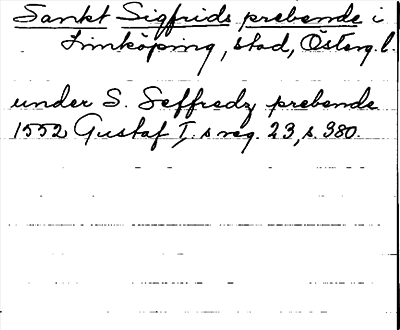 Sankt Sigfrids prebende i
Linköping, stad, Österg. l.
under S. Seffredz prebende
1552 Gustaf I:s reg. 23, s. 380.